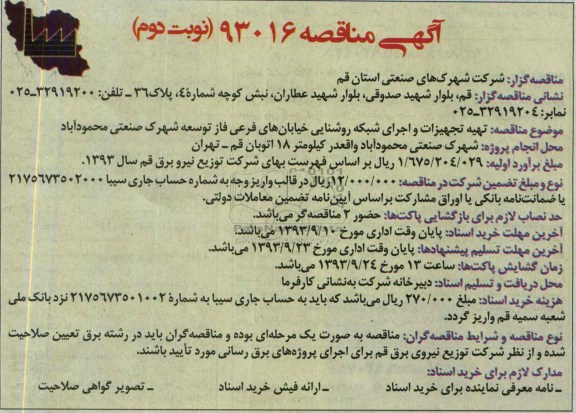 آگهی مناقصه ۹۳۰۱۶ (نوبت دوم)
مناقصه‌گزار: شرکت شهرک‌های صنعتی استان قم
نشانی مناقصه‌گزار: قم، بلوار شهید صدوقی، بلوار شهید عطاران، نبش کوچه شمارهٔ ۴، پلاک ۳۶ ـ تلفن: ۳۲۹۱۹۲۰۰ـ۰۲۵
نمابر: ۳۲۹۱۹۲۰۴ـ۰۲۵
موضوع مناقصه: تهیه تجهیزات و اجرای شبکه روشنایی خیابان‌های فرعی فاز توسعه شهرک صنعتی محمودآباد
محل انجام پروژه: شهرک صنعتی محمودآباد واقعدر کیلومتر ۱۸ اتوبان قم ـ تهران
مبلغ برآورد اولیه: ۱/۶۷۵/۲۰۴/۰۲۹ ریال بر اساس فهرست بهای شرکت توزیع نیرو برق قم سال ۱۳۹۳.
نوع و مبلغ تضمین شرکت در مناقصه: ۱۲/۰۰۰/۰۰۰ریال در قالب واریز وجه به شماره حساب جاری سیبا ۲۱۷۵۶۷۳۵۰۲۰۰۰
یا ضمانت‌نامه بانکی یا اوراق مشارکت براساس آیین‌نامه تضمین معاملات دولتی.
حد نصاب لازم برای بازگشایی پاکت‌ها: حضور ۲ مناقصه‌گر می‌باشد.
آخرین مهلت خرید اسناد: پایان وقت اداری مورخ ۱۳۹۳/۹/۱۰ می‌باشد.
آخرین مهلت تسلیم پیشنهادها: پایان وقت اداری مورخ ۱۳۹۳/۹/۲۳ می‌باشد.
زمان گشایش پاکت‌ها: ساعت ۱۳ مورخ ۱۳۹۳/۹/۲۴ می‌باشد.
محل دریافت و تسلیم اسناد: دبیرخانه شرکت به‌نشانی کارفرما
هزینه خرید اسناد: مبلغ ۲۷۰/۰۰۰ ریال می‌باشد که باید به حساب جاری سیبا به شمارهٔ ۲۱۷۵۶۷۳۵۰۱۰۰۲ نزد بانک ملی
شعبه سمیه قم واریز گردد.
نوع مناقصه و شرایط مناقصه‌گران: مناقصه به صورت یک مرحله‌ای بوده و مناقصه‌گران باید در رشته برق تعیین صلاحیت
شده و از نظر شرکت توزیع نیروی برق قم برای اجرای پروژه‌های برق رسانی مورد تأیید باشند.
مدارک لازم برای خرید اسناد:
ـ نامه معرفی نماینده برای خرید اسناد ـ ارائه فیش خرید اسناد ـ تصویر گواهی صلاحیت